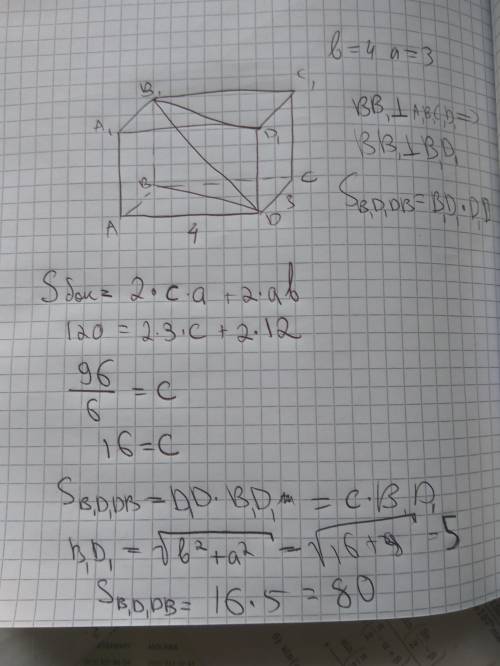 b=4 a=3
C₁
B₁
A₁
D₁
BB₁⊥A₁B₁C₁D₁=>
BB₁⊥B₁D₁
B
C
3
S B₁D₁DB=B₁D₁·D₁D
A
D
4
Sбок= 2·c·a+2·ab
120=2·3·c+2·12
96/6=c
16=c
S B₁D₁DB=D₁D·B₁D₁=c·B₁D₁
B₁D₁=√b²+a²=√16+9=5
S B₁D₁DB=16·5=80